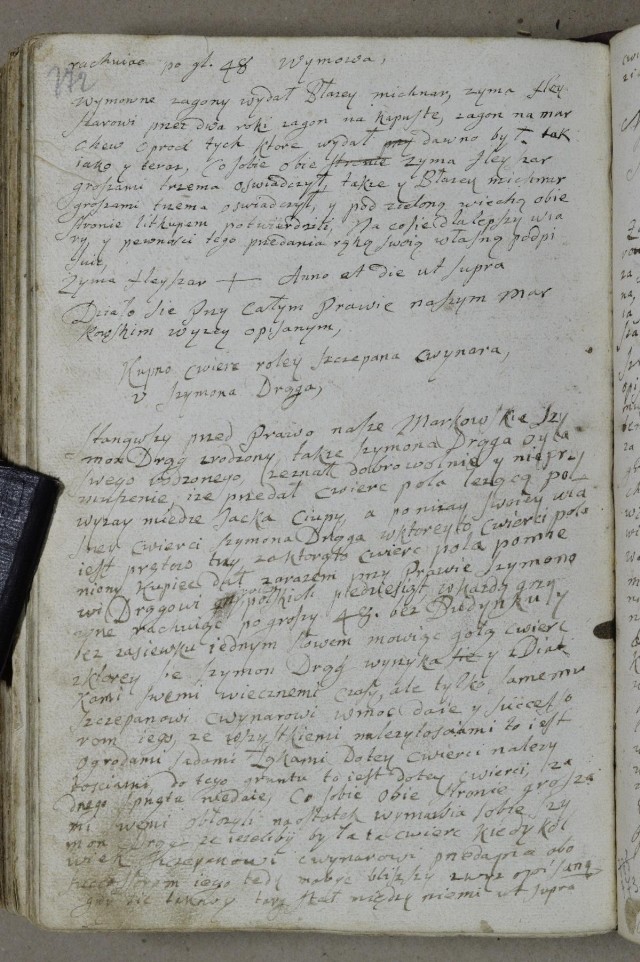 rachuiąc po gł. 48 Wymowa,
172
Wymowne zagony wydał Błazey michnar, zyma fley
szarowi przez dwa roki zagon na kapuste, zagon na mar
chew oprocz tych ktore wydał dawno był tak
iako y teraz, Co sobie obie stronie zyma fleyszar
groszami trzema oswiadczył, takze y Błazey michnar
groszami trzema oswiadczył, y pod zieloną wiechą obie
stronie litkupem potwierdzili, Na co sie dla lepszy wia
ry y pewnosci tego przedania ręką swoią własną podpi
suie,
zyma fleyszar + Anno et die ut supra
Działo sie przy całym Prawie naszym Mar
kowskim wyzey opisanym,
Kupno cwierc roley szczepana cwynara,
v szymona Drąga,
Stanąwszy przed Prawo nasze Markowskie Szy
mon Drąg zrodzony, także szymona Drąga oyca
swego rodzonego, zeznał dobrowolnie y nieprzy
muszenie, ize przedał cwierc pola lezącą po
wyzay miedze Jacka Ciupy, a ponizay swoiey wła
sney cwierci szymona Drąga wktorey to cwierci pola
iest prętow trzy zaktorąto cwierc pola pomie
niony kupiec dał zarazem przy Prawie szymono
wi Drągowi polskich piędziesiąt wkazdą grzy
wne rachuiąc po groszy 48. bez Budynku y
bez zasiewku iednym słowem mowiąc gołą cwierc
zktorey sie szymon Drąg wyrzyka y z Dziat
kami swemi wiecznemi czasy, ale tylko samemu
szczepanowi cwynarowi wmoc daie y successo
rom iego, ze wszystkiemi nalezytosciami to iest
ogrodami sadami Łąkami Dotey cwierci należy
tosciami, do tego gruntu to iest dotey cwierci, za
dnego sprzętu niedaie, Co sobie obie stronie grosza
mi wemi obłozyli naostatek wymawia sobie szy
mon Drąg ze iezeliby była ta cwierc kiedykol
wiek szczepanowi cwynarowi przedaina abo
successorom iego tedy nabyc blizszy zwyz opisany
gdyz sie takowy targ stał między niemi ut supra